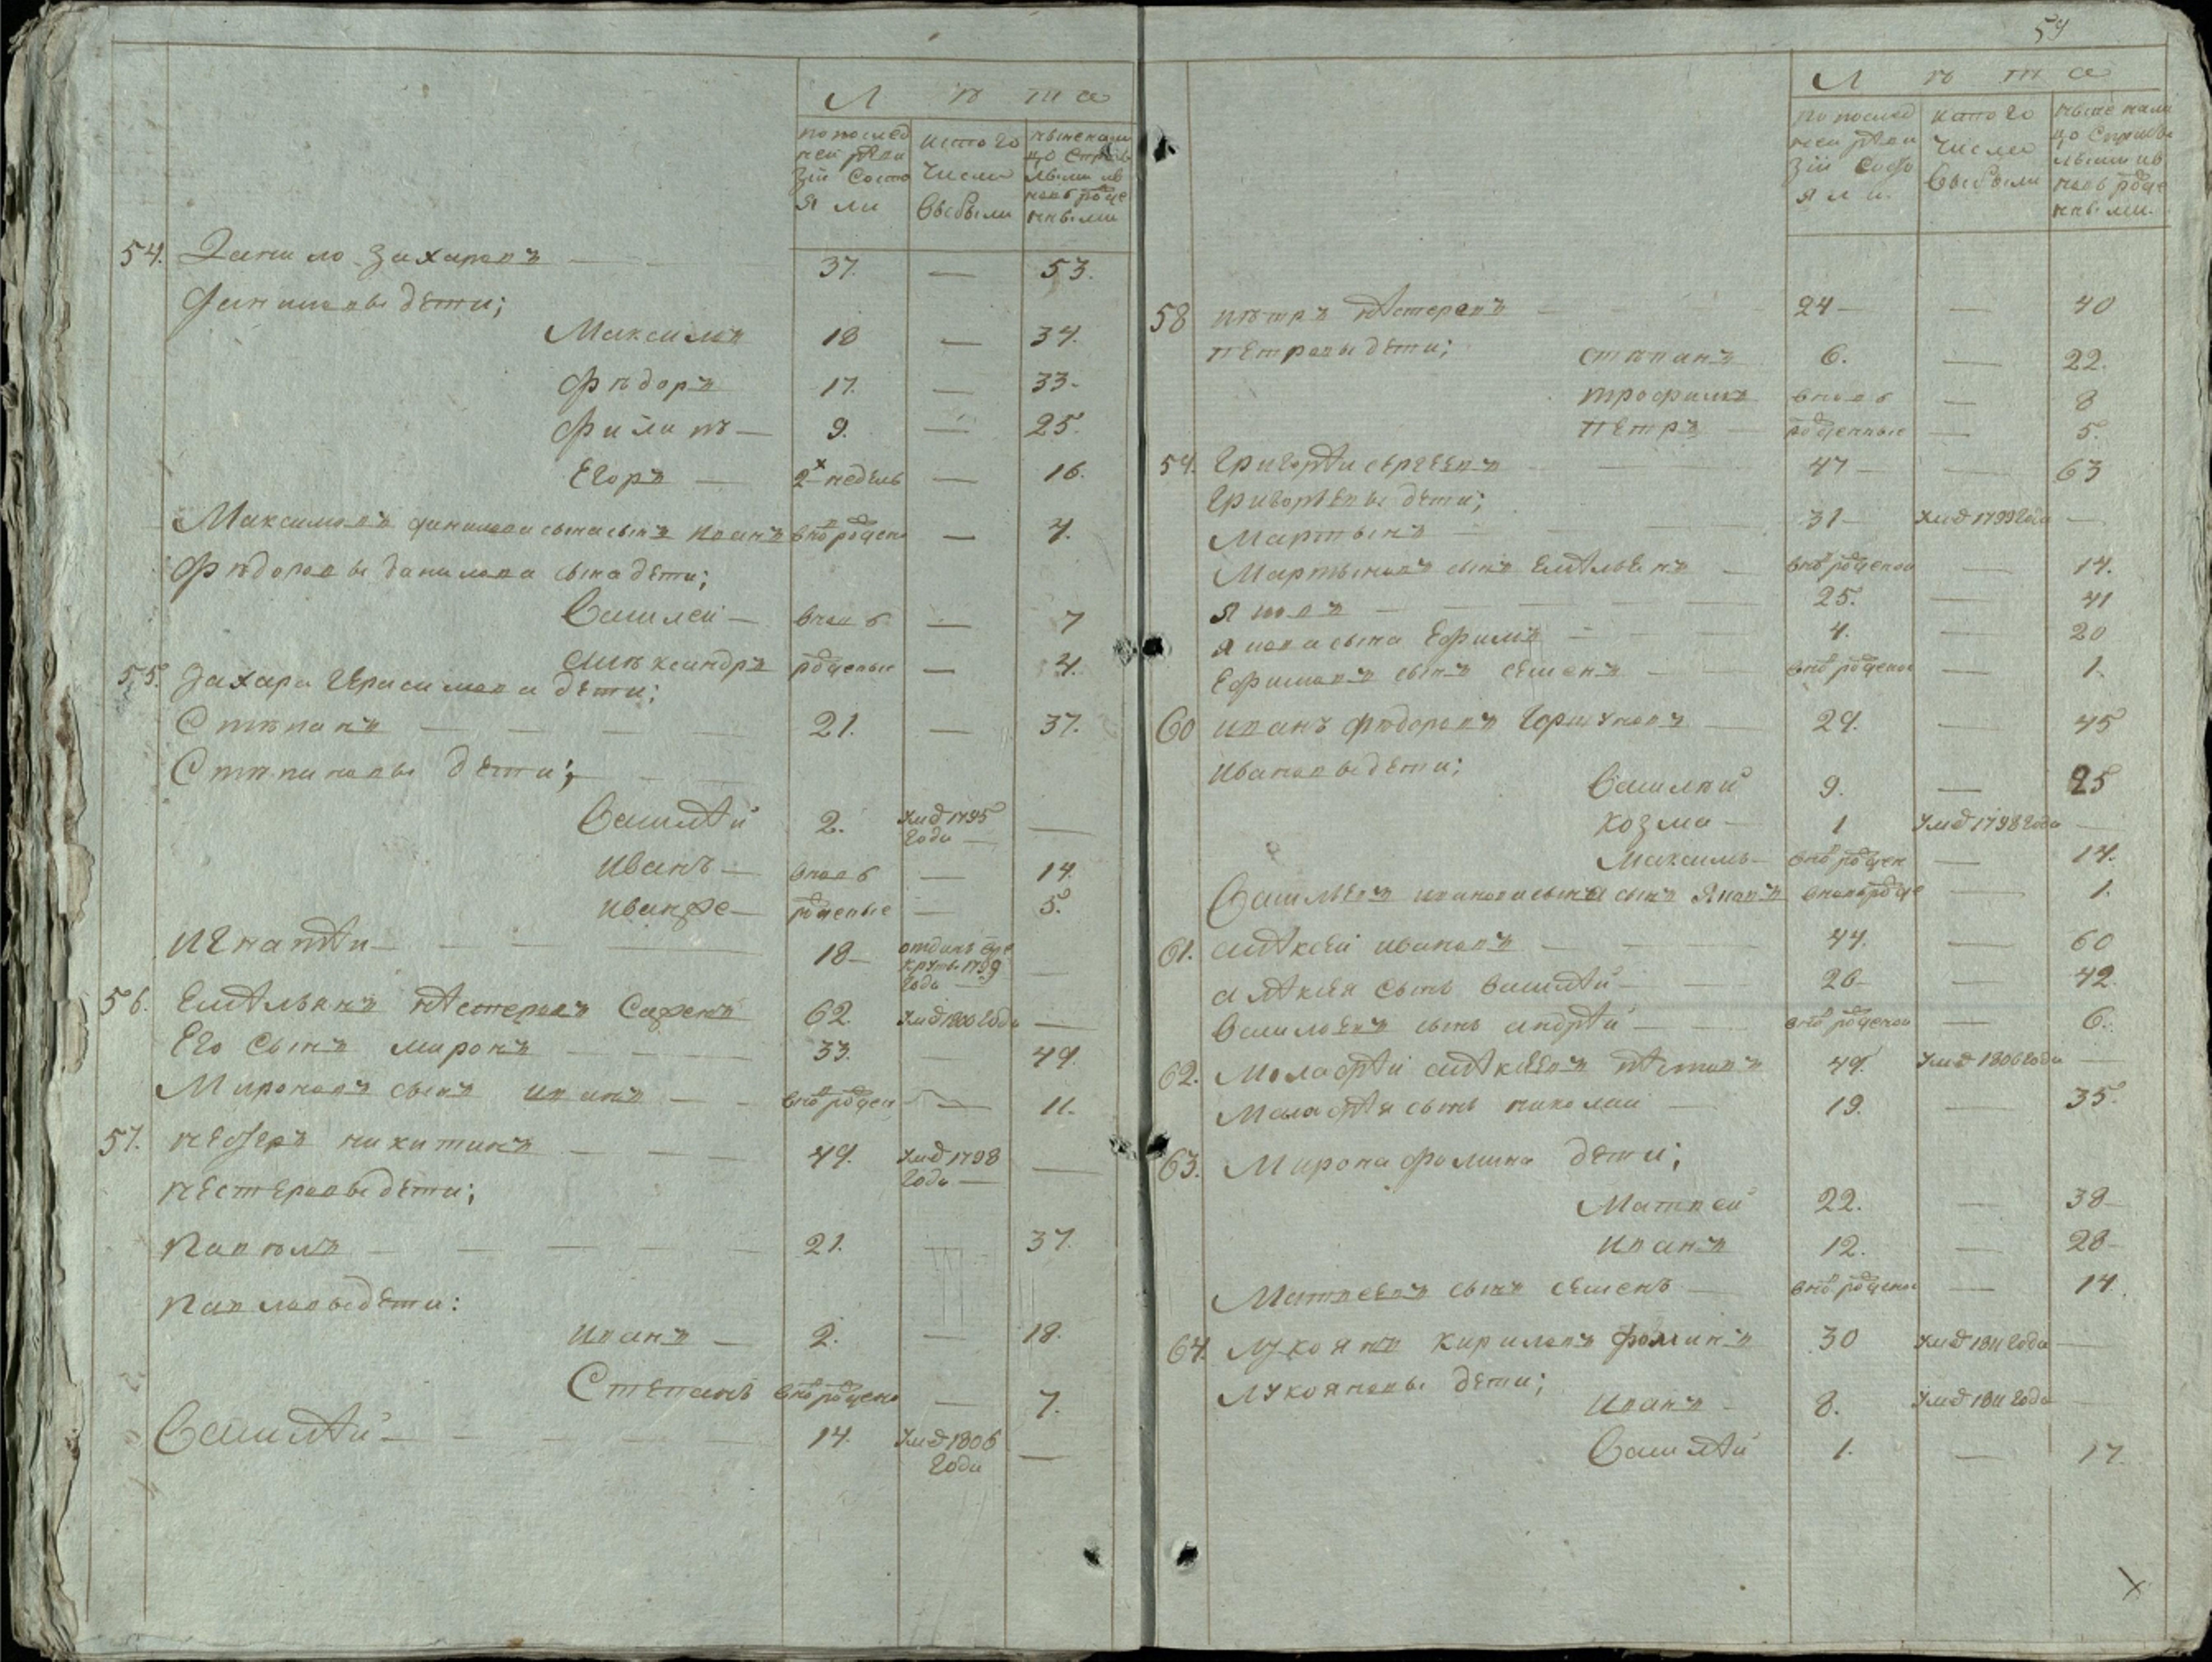 Л ѣ т а
по послед
ней реви
зіи состо
я ли
ис того
числа
выбыли
ныне нали
цо с прибы
лыми и в
новь рожде
нными
54. Данило Захаровъ — — 37. — 53.
Даниловы дети;
Максимъ 18 — 34.
Фѣдоръ 17. — 33.
Филипъ — 9. — 25.
Егоръ — 2х недель — 16.
Максимовъ Данилова сына сынъ Иванъ вно рожден — 4.
Фѣдоровы Данилова сына дети;
Василей — вновь — 7
Алѣксандръ рожденые — 4.
55. Захара Герасимова дети;
Стѣпанъ — — — — 21. — 37.
Стѣпановы дети; — —
Василей 2. умд 1795 года —
Иванъ — вновь — 14.
Иванже — рожденые — 5.
Игнатеи — — — 18 — отданъ в рекруты 1799 года — —
56. Емельянъ Нестеровъ 62. умд 1800 года —
Его сынъ Миронъ — — — 33. — 49.
Мироновъ сынъ Иванъ — — вно рожден — 11.
57. Нестеръ Никитинъ — — — 49. умд 1798 года — —
Нестеровы дети;
Павѣлъ — — — — 21. — 37.
Павловы дети:
Иванъ — 2. — 18.
Степанъ вно рождено — 7.
Василей — — — — 14. умд 1806 года —
59
Л ѣ т а
по послед
ней реви
зіи состо
я ли.
ис того
числа
выбыли
ныне нали
цо с прибы
лыми и в
новь рожде
нными.
58 Пѣтръ Нестеровъ — — 24 — — 40
Петровы дети; Стѣпанъ 6. — 22.
Трофимъ вновь — 8
Петръ — рожденные — 5.
59. Григореи Сергеевъ — — 47 — — 63
Григорьевы дети;
Мартынъ — — 31 — умд 1799 года —
Мартыновъ сынъ Емельенъ — вно рожденой — 14.
Яковъ — — — — — 25. — 41
Якова сына Ефимъ — — — 4. — 20
Ефимовъ сынъ Семенъ — — вно рожденой — 1.
60 Иванъ Фѣдоровъ Горшуновъ — 29. — 45
Ивановы дети;
Василей 9. — 25
Козма — 1 умд 1798 года —
Максимъ — вно рожден — 14.
Васильевъ Иванова сына сынъ Яковъ вновь рожде — 1.
61. Алексей Ивановъ — — — 44. — 60
Алексея сынъ Василей — — 26 — — 42.
Васильевъ сынъ Андрей — — вно рожденой — 6.
62. Малафей Алексеевъ 49. умд 1806 года —
Малафея сынъ Николаи — 19. — 35.
63. Мирона Фомина дети;
Матвей 22. — 38 —
Иванъ 12. — 28 —
Матвеевъ сынъ Семенъ — вно рожденой — 14.
64. Лукоянъ Кириловъ Фоминъ 30 умд 1811 года —
Лукояновы дети;
Иванъ — 8. умд 1811 года —
Василей 1. — 17.